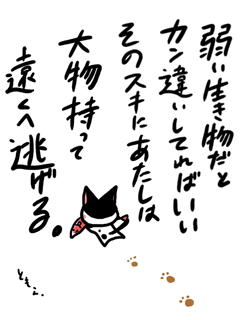 弱い生き物だと
カン違いしてればいい
そのスキにあたしは
大物持って
遠くへ逃げる。
ともえ.